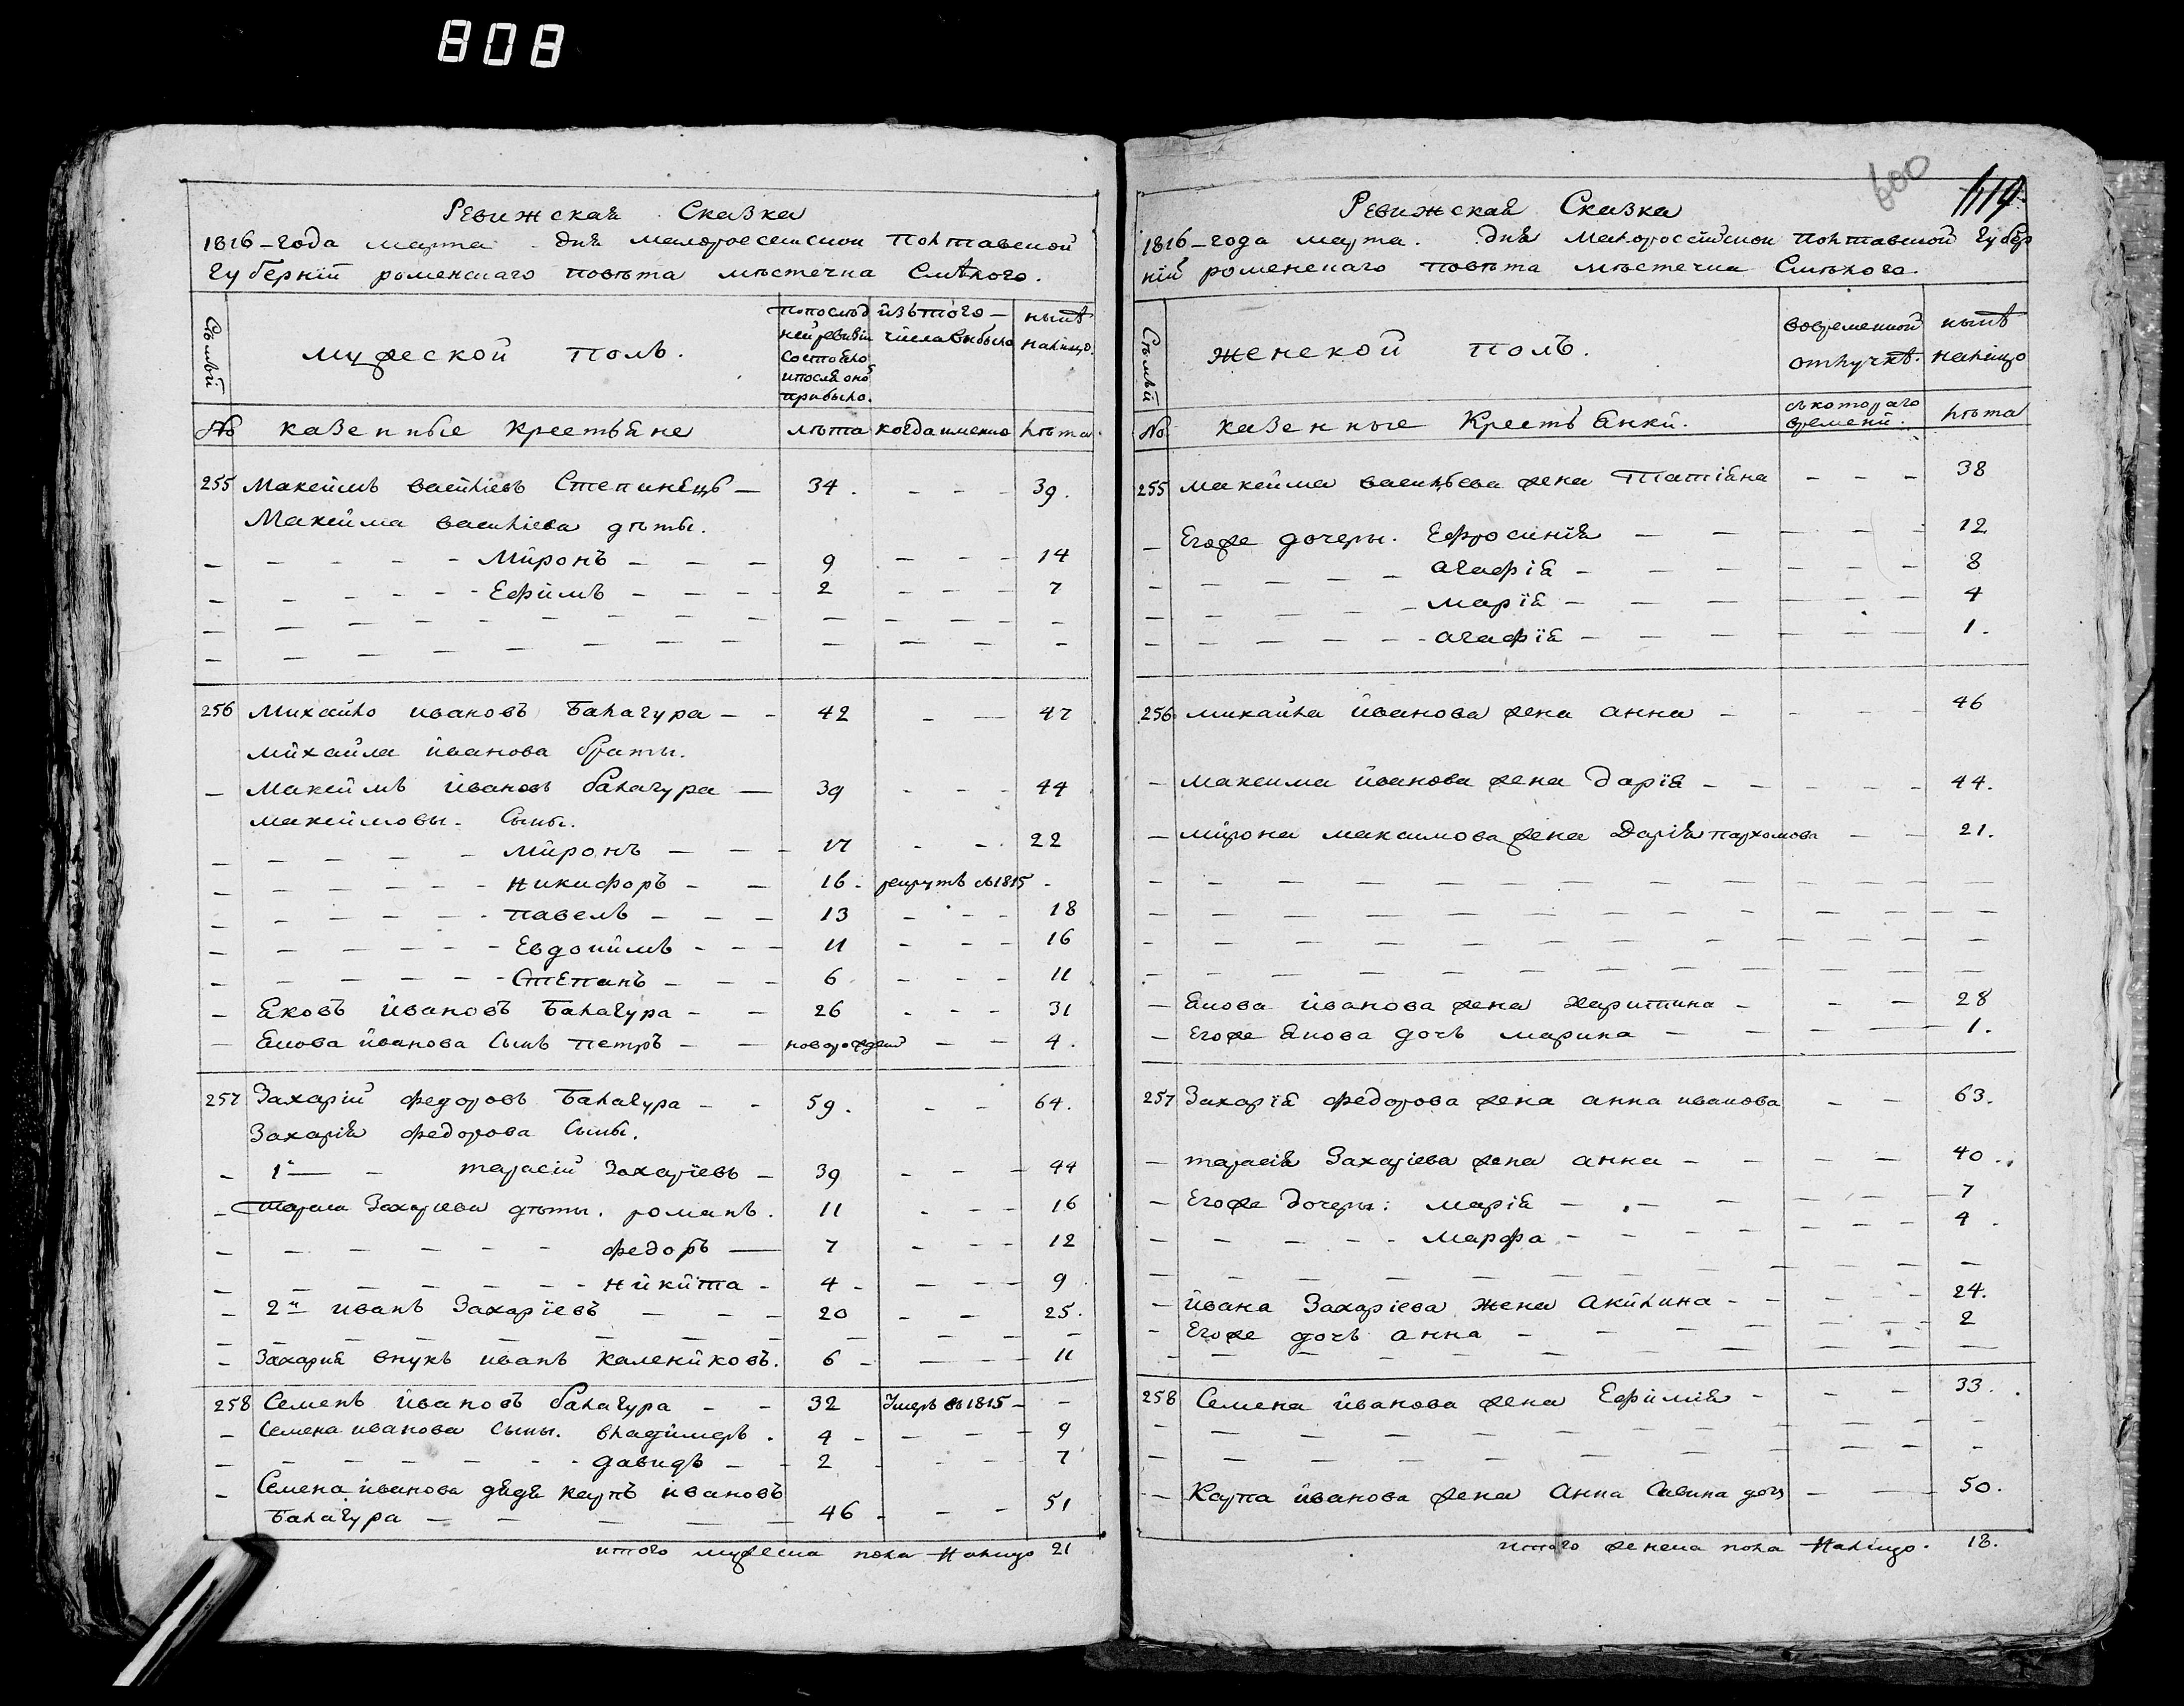 808
Ревижская Сказка
1816-года марта. дня малороссийской Полтавской
губерніи роменскаго повѣта мѣстечка Смѣлого.
Семьи
мужеской полъ.
попослѣд изътого — нынѣ
ней ревизіи числа выбыло налицо.
состояло
ипосля оной
прибыло.
№ казенные крестьяне лѣта когда имянно лѣта.
255 Максимъ василіевъ Степинецъ — 34. - - - 39.
Максима василіева дѣты.
Миронъ 9 - - - 14
Ефимъ 2 - - - 7
256 Михайло ивановъ Балагура - - 42 - — 47
михаила иванова браты.
— Максимъ ивановъ балагура — 39 - - - 44
максимовы. Сыны.
Миронъ 17 - - 22
Никифоръ 16 - рекрутъ въ 1815 -
павелъ 13 - - - 18
Евдокимъ 11 - - - 16
Степанъ 6 - - - 11
— Яковъ ивановъ Балагура - - 26 - - - 31
— Якова иванова сынъ петръ - - новорожден — - 4.
257 Захарій федоровъ Балагура - - 59. - - 64.
Захарія федорова Сыны.
1й — - тарасій Захаріевъ - 39 - - - 44
тараса Захаріева дѣты. романъ. 11 - - - 16
федоръ — 7 - - - 12
никита - 4 - - - - 9
2й иванъ Захаріевъ - - - 20 - - 25.
Захарія внукъ иванъ калениковъ. 6 - — - - 11
258 Семенъ ивановъ балагура - - 32 Умеръ въ 1815 - -
Семена иванова Сыны. владимеръ. 4 - - - - 9
давидъ - - 2 - - - 7
Семена иванова дядя карпъ ивановъ
балагура 46 - - - 51
итого мужеска пола налицо 21
600
119.
Ревижская Сказка
1816-года марта. дня малороссійской полтавской губер
ніи роменскаго повѣта мѣстечка Смѣлого.
Семьи
женской полъ.
вовременной нынѣ
отлучкѣ. налицо
№ казенные Крестьянки. съкотораго времени. лѣта
255 максима васильева жена Татіяна - - - 38
— Егоже дочеры. Ефросинія 12
агафія 8
марія 4
агафія 1.
256 михайла иванова жена анна 46
— максима иванова жена Дарія 44.
— мирона максимова жена Дарія пархомова - - 21.
— Якова иванова жена харитина - - - 28
— Егоже Якова дочь марина 1.
257 Захарія федорова жена анна иванова - - 63.
— тарасія Захаріева жена анна 40.
— Егоже дочеры: марія 7
марфа 4.
— ивана Захаріева жена акилина 24.
— Егоже дочь анна 2
258 Семена иванова жена Ефимія - - - 33.
— Карпа иванова жена Анна Савина дочь - - 50.
итого женска пола налицо. 18.